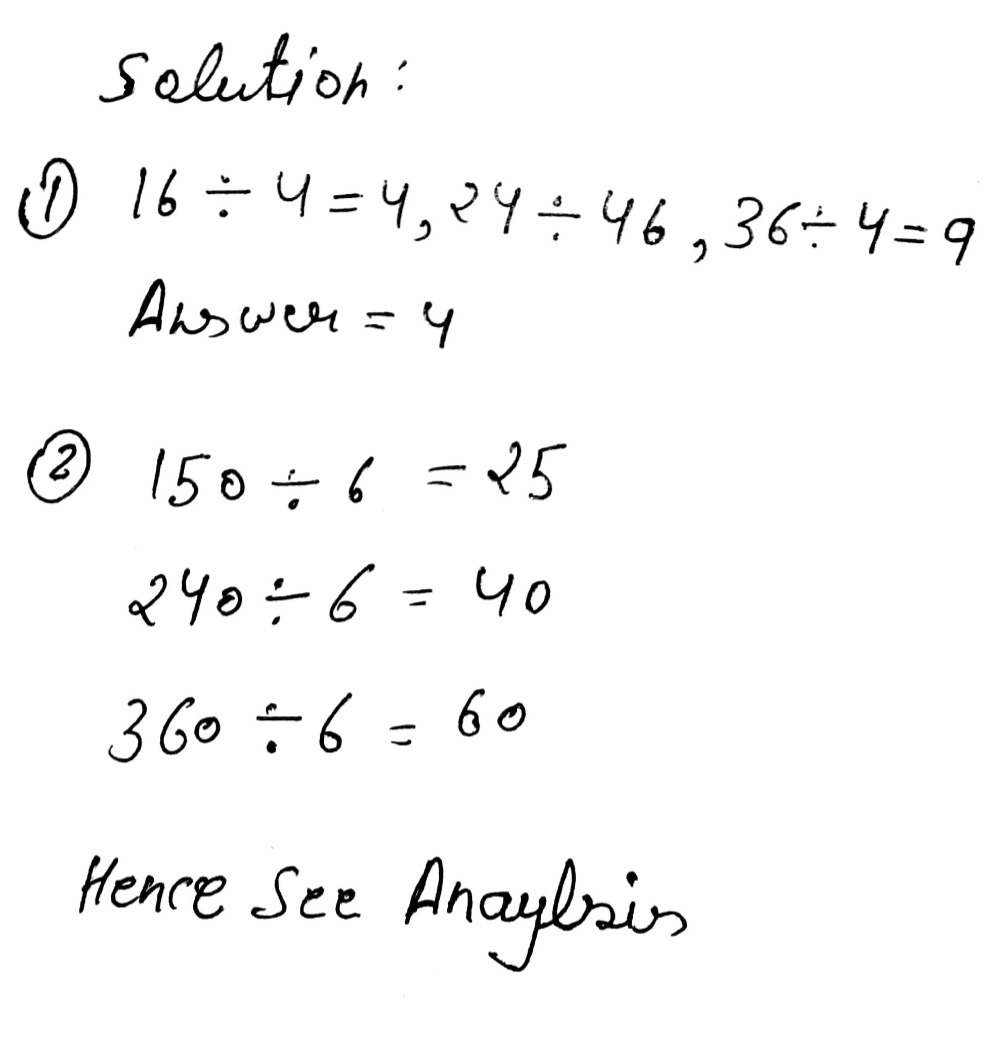 Solution:
① 16 ÷ 4 = 4, 24 ÷ 46, 36 ÷ 4 = 9
Answer = 4
② 150 ÷ 6 = 25
240 ÷ 6 = 40
360 ÷ 6 = 60
Hence See Anaylsis